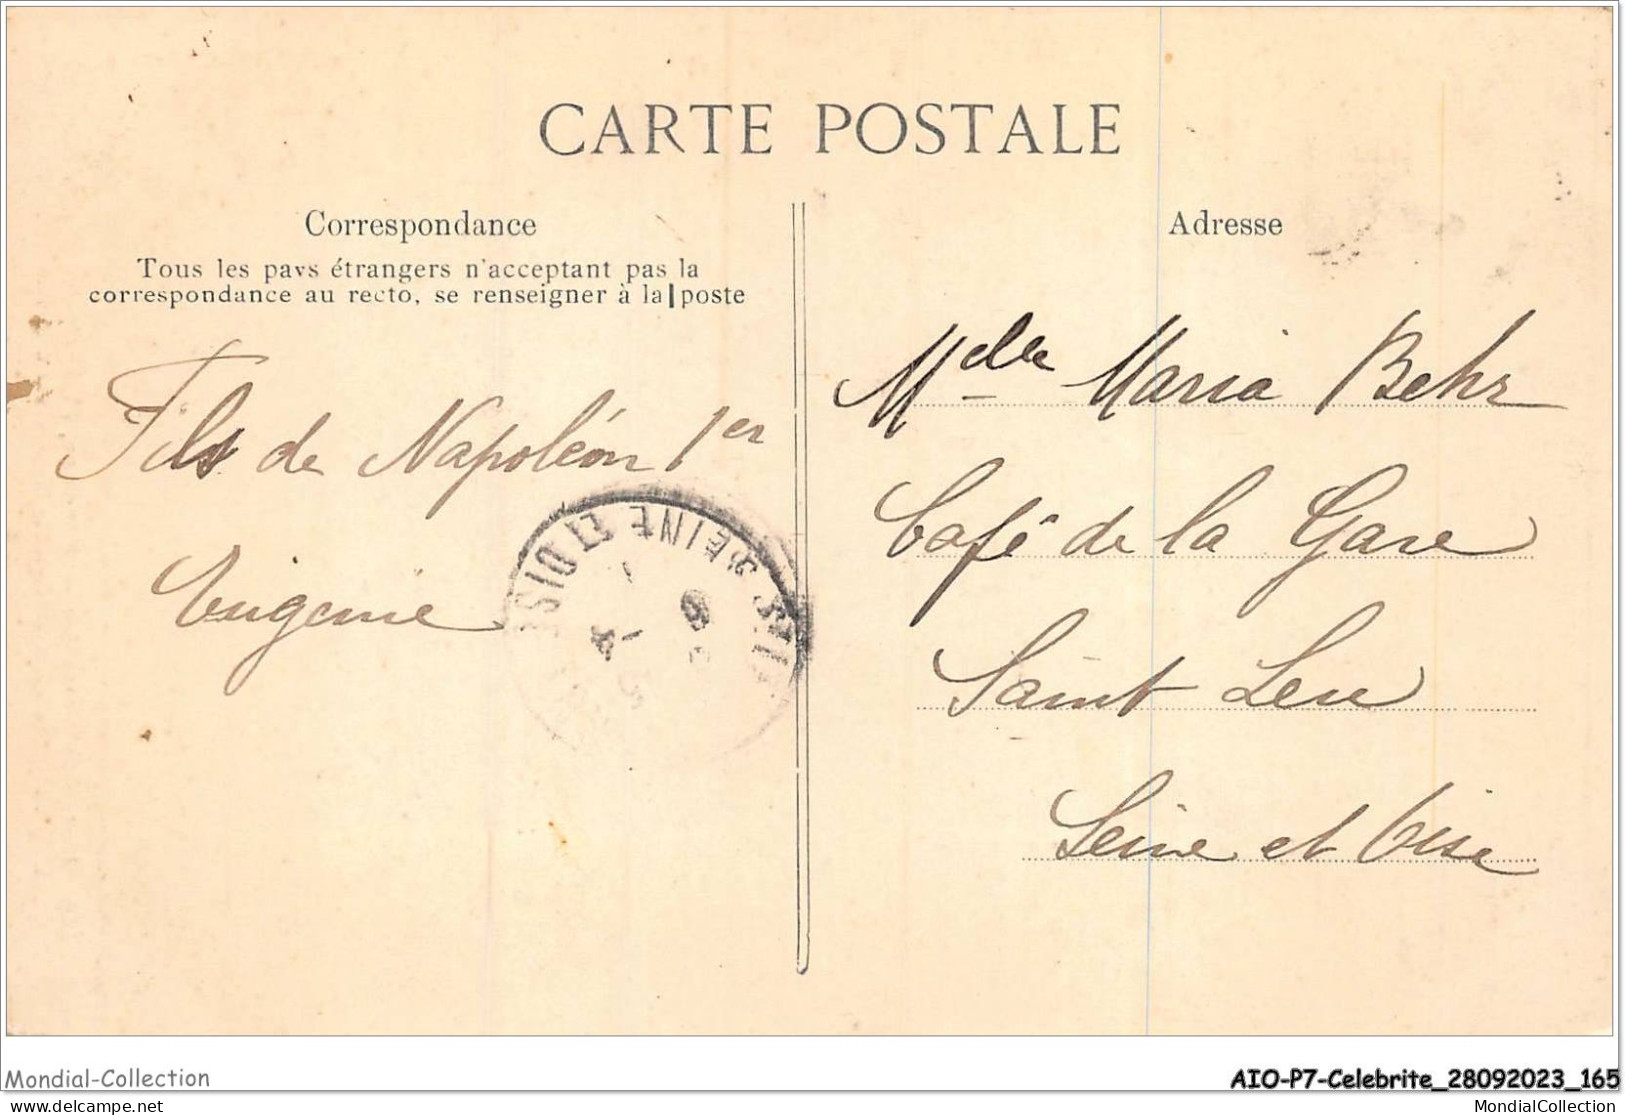 CARTE POSTALE
Correspondance
Tous les pays étrangers n'acceptant pas la
correspondance au recto, se renseigner à la poste
Fils de Napoléon 1er
Eugenie
SEINE ET OISE
Adresse
Mdlle Maria Behr
Café de la Gare
Saint Leu
Seine et Oise
Mondial-Collection
AIO-P7-Celebrite_28090223_165
delcampe.net
MondialCollection